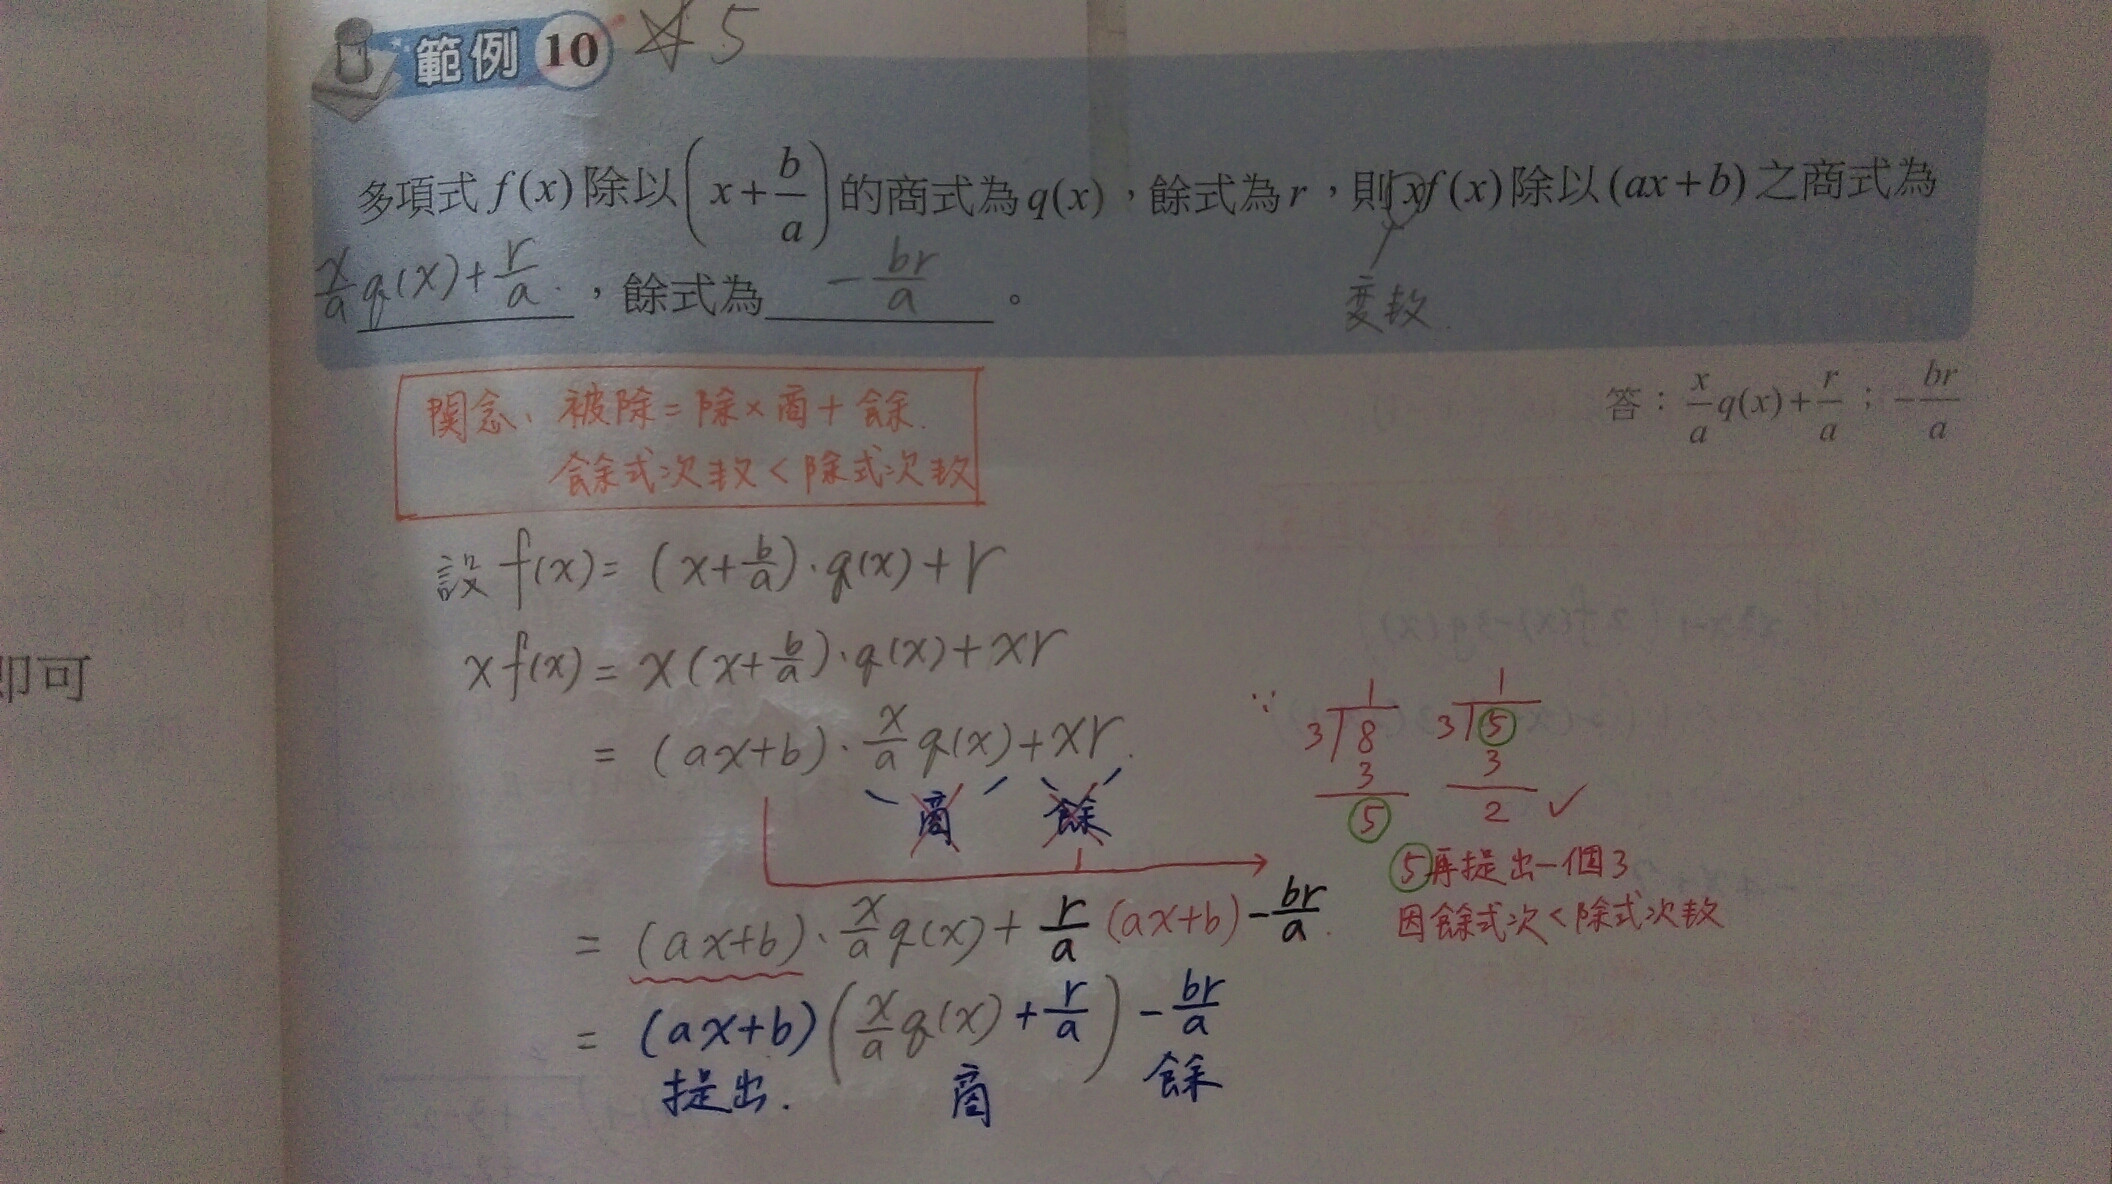 範例 10 ☆5
多項式 f(x) 除以 (x + b/a) 的商式為 q(x)，餘式為 r，則 xf(x) 除以 (ax+b) 之商式為
x/a q(x) + r/a ，餘式為 - br/a 。
变数
答：x/a q(x) + r/a ; - br/a
関念、被除=除×商+餘.
餘式次数<除式次数
設 f(x) = (x + b/a)·q(x) + r
x f(x) = x(x + b/a)·q(x) + xr
= (ax+b)·x/a q(x) + xr.
商 餘
= (ax+b)·x/a q(x) + r/a (ax+b) - br/a.
= (ax+b)(x/a q(x) + r/a) - br/a
提出. 商 餘
∵
1
3 8
3
5
1
3 5
3
2 ✓
⑤再提出一個3
因餘式次<除式次数
即可